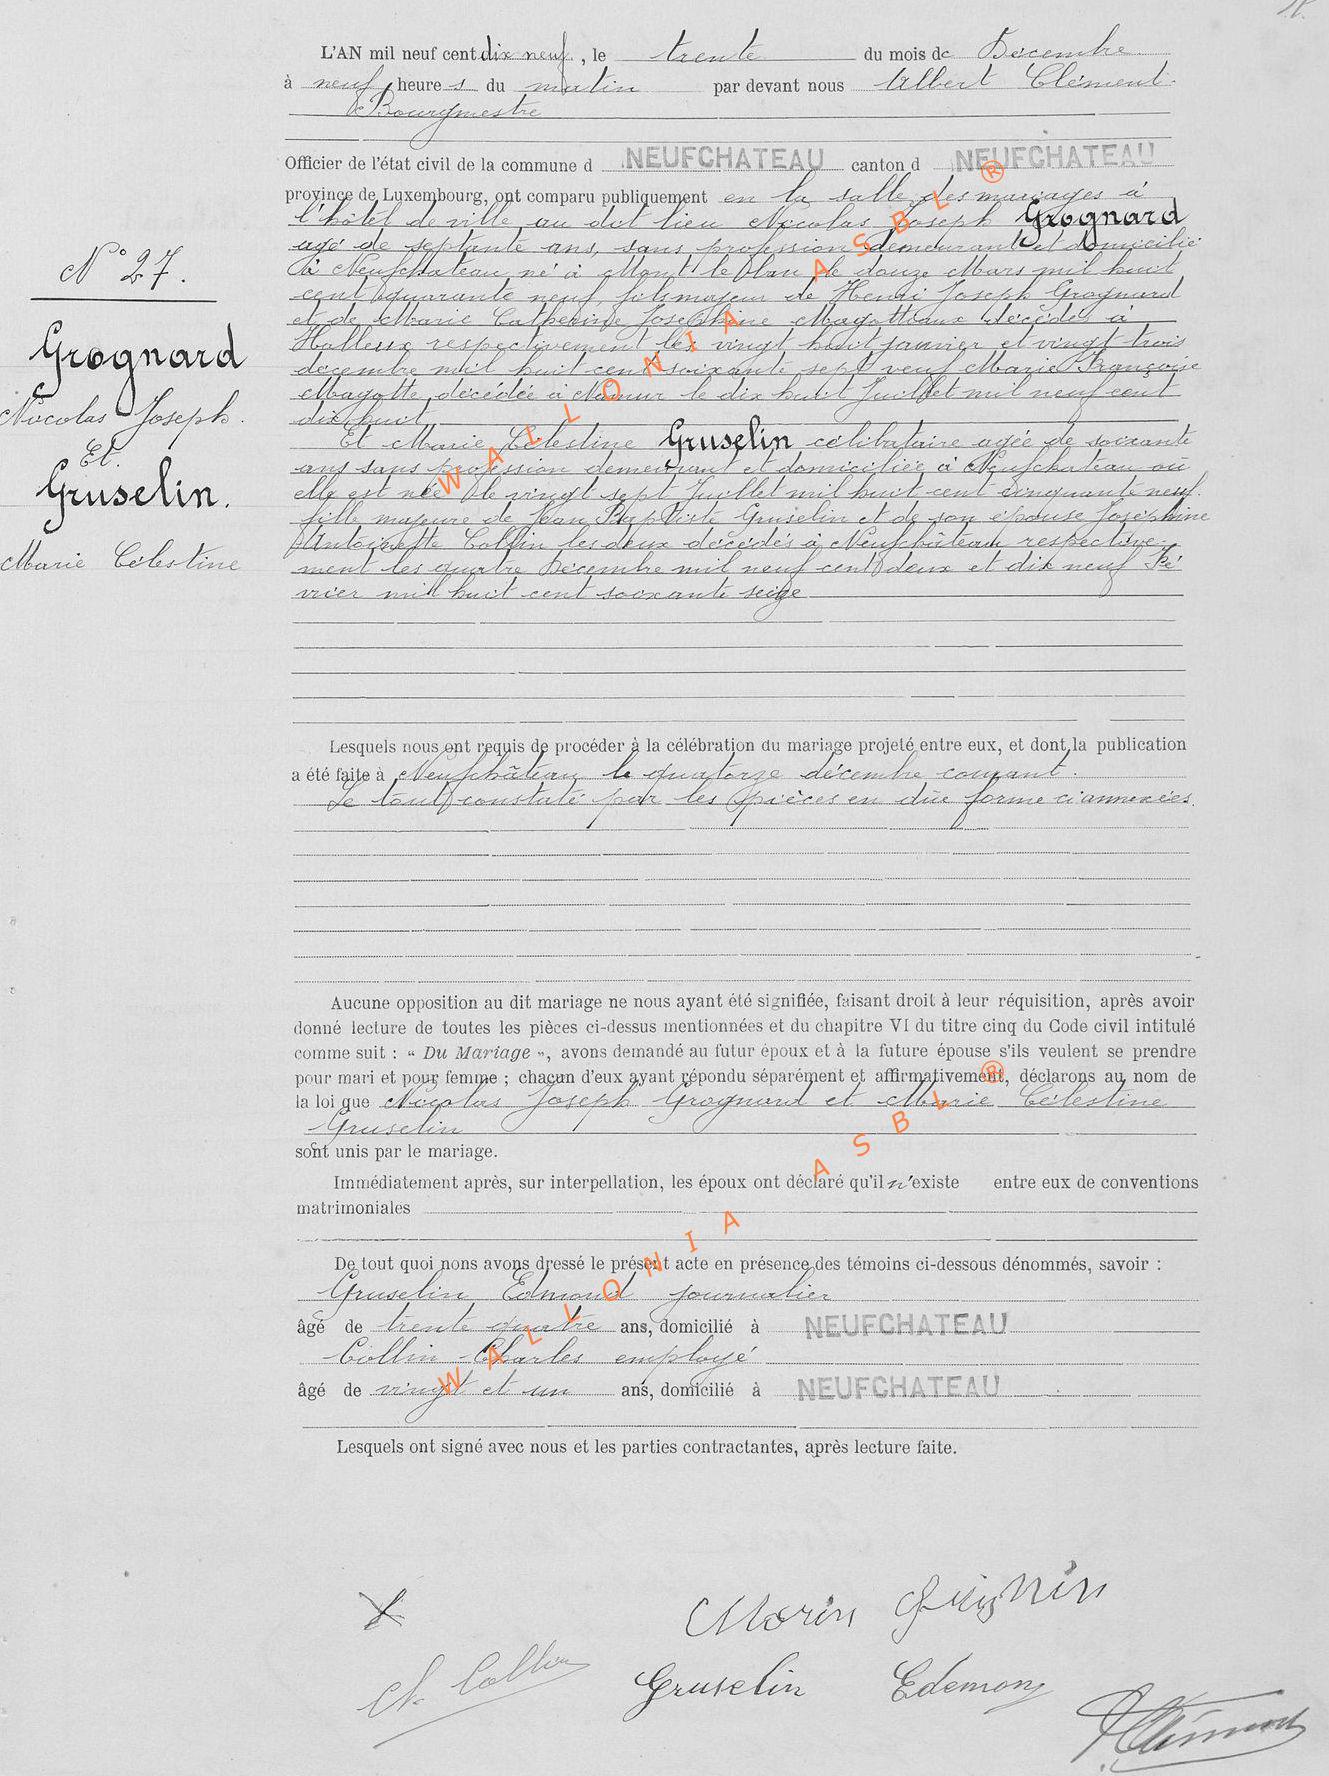 L'AN mil neuf cent dix neuf, le trente du mois de Décembre
à neuf heures du matin par devant nous Albert Clément
Bourgmestre
Officier de l'état civil de la commune d NEUFCHATEAU canton d NEUFCHATEAU
province de Luxembourg, ont comparu publiquement en la salle des mariages à
l'hôtel de ville au dit lieu Nicolas Joseph Grognard
agé de septante ans, sans profession demeurant et domicilié
à Neufchateau né à Mont le Ban le douze Mars mil huit
cent quarante neuf, fils majeur de Henri Joseph Grognard
et de Marie Catherine Josephine Magotteaux décédés à
Halleux respectivement les vingt huit janvier et vingt trois
décembre mil huit cent soixante sept veuf Marie Françoise
Magotte, décédée à Namur le dix huit Juillet mil neuf cent
dix huit
Et Marie Célestine Gruselin célibataire agée de soixante
ans sans profession demeurant et domiciliée à Neufchateau où
elle est née le vingt sept Juillet mil huit cent cinquante neuf.
fille majeure de Jean Baptiste Gruselin et de son épouse Joséphine
Antoinette Collin les deux décédés à Neufchâteau respective-
ment les quatre Décembre mil neuf cent deux et dix neuf Fé
vrier mil huit cent soixante seize
N° 27.
Grognard
Nicolas Joseph.
Et.
Gruselin.
Marie Célestine
Lesquels nous ont requis de procéder à la célébration du mariage projeté entre eux, et dont la publication
a été faite à Neufchâteau le quatorze décembre courant.
Le tout constaté par les pièces en dûe forme ci annexées.
Aucune opposition au dit mariage ne nous ayant été signifiée, faisant droit à leur réquisition, après avoir
donné lecture de toutes les pièces ci-dessus mentionnées et du chapitre VI du titre cinq du Code civil intitulé
comme suit : « Du Mariage », avons demandé au futur époux et à la future épouse s'ils veulent se prendre
pour mari et pour femme ; chacun d'eux ayant répondu séparément et affirmativement, déclarons au nom de
la loi que Nicolas Joseph Grognard et Marie Célestine
Gruselin
sont unis par le mariage.
Immédiatement après, sur interpellation, les époux ont déclaré qu'il n'existe entre eux de conventions
matrimoniales
De tout quoi nons avons dressé le présent acte en présence des témoins ci-dessous dénommés, savoir :
Gruselin Edmond journalier
âgé de trente quatre ans, domicilié à NEUFCHATEAU
Collin Charles employé
âgé de vingt et un ans, domicilié à NEUFCHATEAU
Lesquels ont signé avec nous et les parties contractantes, après lecture faite.
Ch Collin
Gruselin Edemon
A Clément
WALLONIA ASBL ®
WALLONIA ASBL ®